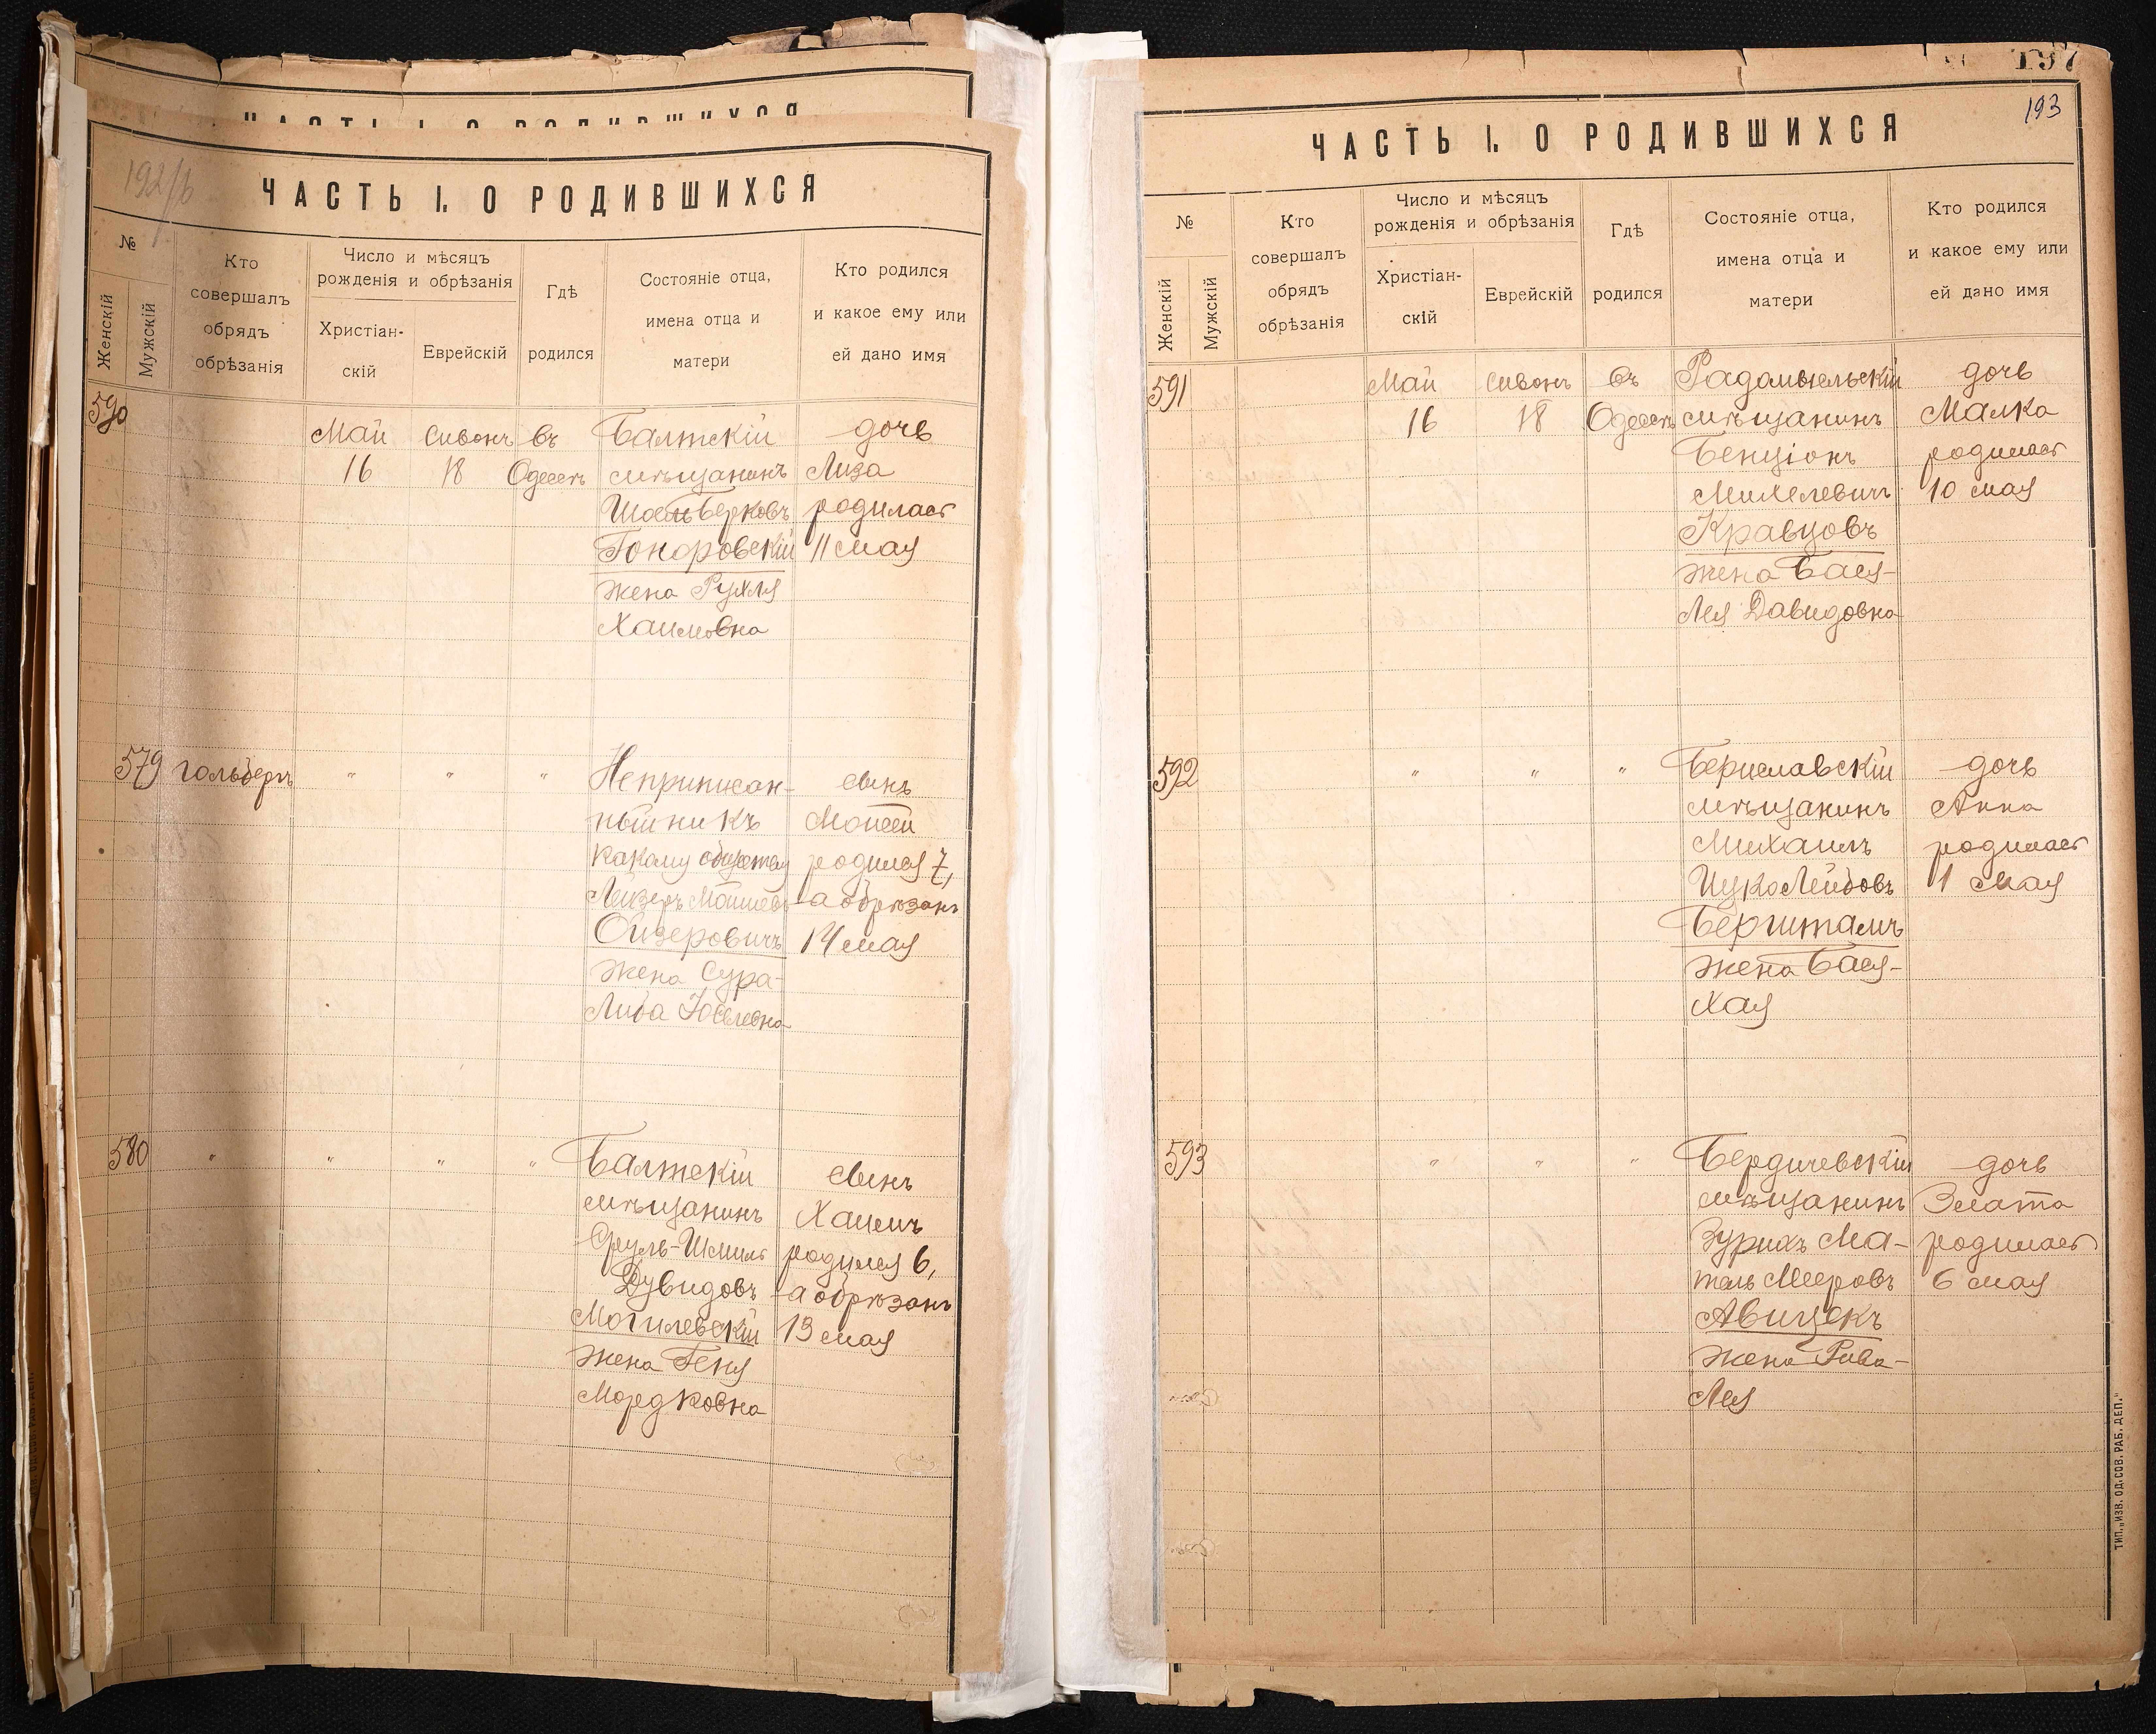 ЧАСТЬ I. О РОДИВШИХСЯ
192/b
ЧАСТЬ I. О РОДИВШИХСЯ
№
Женскій
Мужскій
Кто
совершалъ
обрядъ
обрѣзанія
Число и мѣсяцъ
рожденія и обрѣзанія
Христіан-
скій
Еврейскій
Гдѣ
родился
Состояніе отца,
имена отца и
матери
Кто родился
и какое ему или
ей дано имя
590
Май Сивонъ въ Балтскій дочь
16 18 Одессѣ мѣщанинъ Лиза
Берковъ родилась
Гоноровскій 11 мая
жена Рухля
Хаимовна
579 Гольберъ " " " Неприписан- сынъ
ный ни къ Мойсей
какому обществу родился 7,
Лейзеръ Мошковъ а обрѣзанъ
Ойзеровичъ 14 мая
жена Сура-
Либа Іоселевна
580 " " " " Балтскій сынъ
мѣщанинъ Хаимъ
Сруль-Шмиль родился 6,
Дувидовъ а обрѣзанъ
Могилевскій 13 мая
жена Геня
Мордковна
197
193
ЧАСТЬ I. О РОДИВШИХСЯ
№
Женскій
Мужскій
Кто
совершалъ
обрядъ
обрѣзанія
Число и мѣсяцъ
рожденія и обрѣзанія
Христіан-
скій
Еврейскій
Гдѣ
родился
Состояніе отца,
имена отца и
матери
Кто родился
и какое ему или
ей дано имя
591 Май Сивонъ въ Радомысльскій дочь
16 18 Одессѣ мѣщанинъ Малка
Бенціонъ родилась
Михелевичъ 10 мая
Кравцовъ
жена Бася-
Лея Давидовна
592 " " " Бериславскій дочь
мѣщанинъ Анна
Михаилъ родилась
Ицко Лейбовъ 1 мая
Берштамъ
жена Бася-
Хая
593 " " " Бердичевскій дочь
мѣщанинъ Злата
Зурихъ Ма- родилась
тель Мееровъ 6 мая
Авицекъ
жена Рива-
Лея
ТИП. „ИЗВ. ОД. СОВ. РАБ. ДЕП."